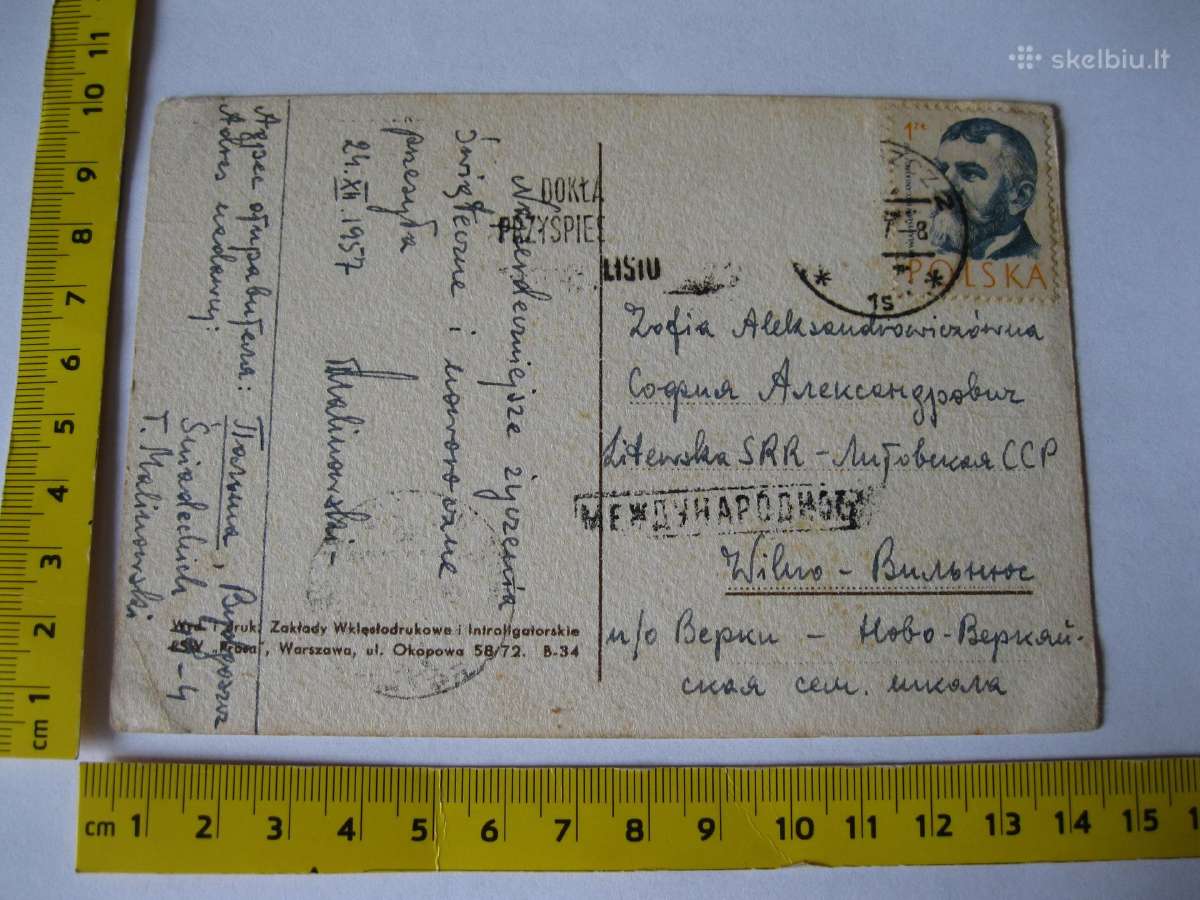 skelbiu.lt
1 zł
POLSKA
DOKŁA
PRZYŚPIES
LISTU
Zofia Aleksandrowiczówna
София Александрович
Litewska SRR - Литовская ССР
МЕЖДУНАРОДНОЕ
Wilno - Вильнюс
п/о Верки - Ново-Веркяй-
ская сем. школа
Najserdeczniejsze życzenia
świąteczne i noworoczne
przesyła
Malinowski-
24.XII.1957
Адрес отправителя: Польша, Bydgoszcz
Adres nadawcy:
Śniadeckich
T. Malinowski
Druk. Zakłady Wklęsłodrukowe i Introligatorskie
"Prasa", Warszawa, ul. Okopowa 58/72. B-34
cm 1 2 3 4 5 6 7 8 9 10 11
cm 1 2 3 4 5 6 7 8 9 10 11 12 13 14 15